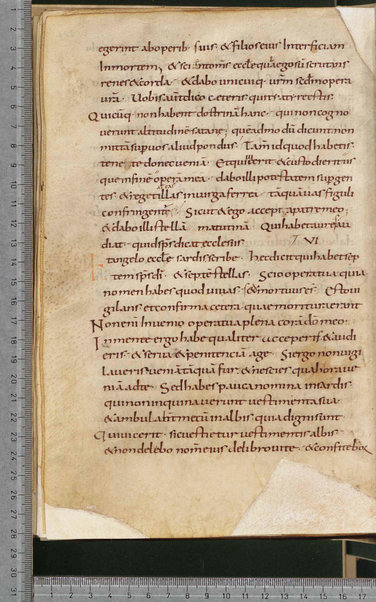 egerint ab operib· suis & filios eius Interficiam
Inmortem, & sci& omēs eccłę quia ego sū scrutans
renes & corda· & dabo unicuiq· urm̄ scdm opera
urā· Uobis aut dico cæteris qui tyatirę estis·
Quicuq· non habent doctrinā hanc· qui non cogno
uerunt altitudinē satanę, quēadmodū dicunt non
mittā sup uos aliud pondus Tam id quod habetis
tenete donec ueniā· Et qui uicerit & custodierit us
que in finē opera mea· dabo illi potestatem sup gen
tes & reg& illas in uirga ferrea· tāquā uas figuli
confringentur· Sicut & ego accepi a patre meo,
& dabo illi stellā matutinā· Qui hab& aurē au
diat· quid sps dicat ecclesiis VI
& angelo eccłę sardis scribe· Hęc dicit qui hab& sep
tem sps di· & septē stellas· Scio opera tua quia
nomen habes quod uiuas· sed mortuus es· Esto ui
gilans et confirma cetera quæ moritura erant
Non enī Inuenio opera tua plena corā do meo·
In mente ergo habe qualiter acceperis & audi
eris· & serua & pęnitenciā age· Si ergo non uigi
laueris ueniā tāquā fur & nescies qua hora ue
niā ad te· Sed habes pauca nomina in sardis
qui non inquinauerunt uestimenta sua·
& ambulabūt mecū in albis quia digni sunt
Qui uicerit· sic uestietur uestimentis albis·
& non delebo nomē eius de libro uitę· & confitebor